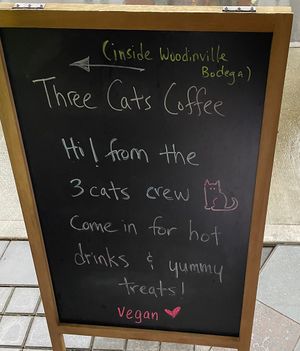 (inside Woodinville
Bodega)
Three Cats Coffee
Hi! from the
3 cats crew
Come in for hot
drinks & yummy
treats!
Vegan